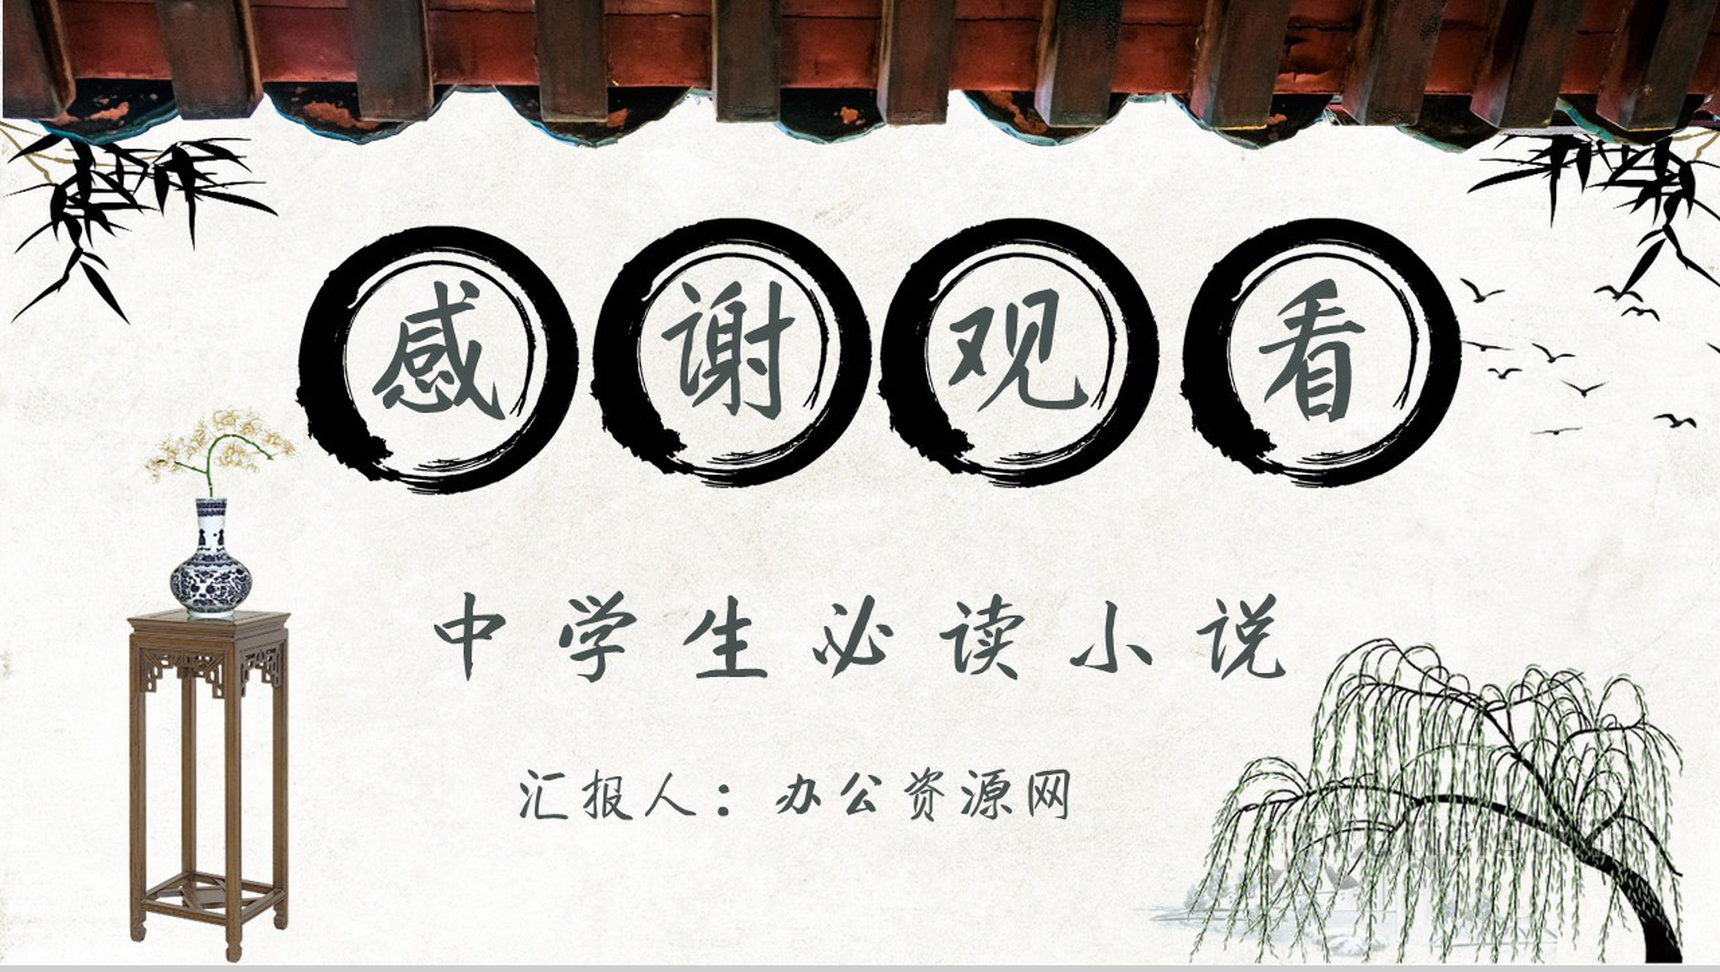 感谢观看
中学生必读小说
汇报人：办公资源网